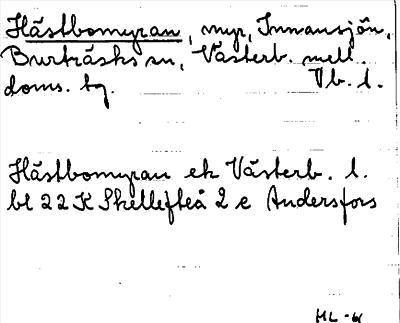 Hästbomyran, myr, Innansjön,
Burträsks sn, Västerb. mell.
doms. tg. Vb. l.
Hästbomyran ek Västerb. l.
bl 22 K Skellefteå 2 e Andersfors